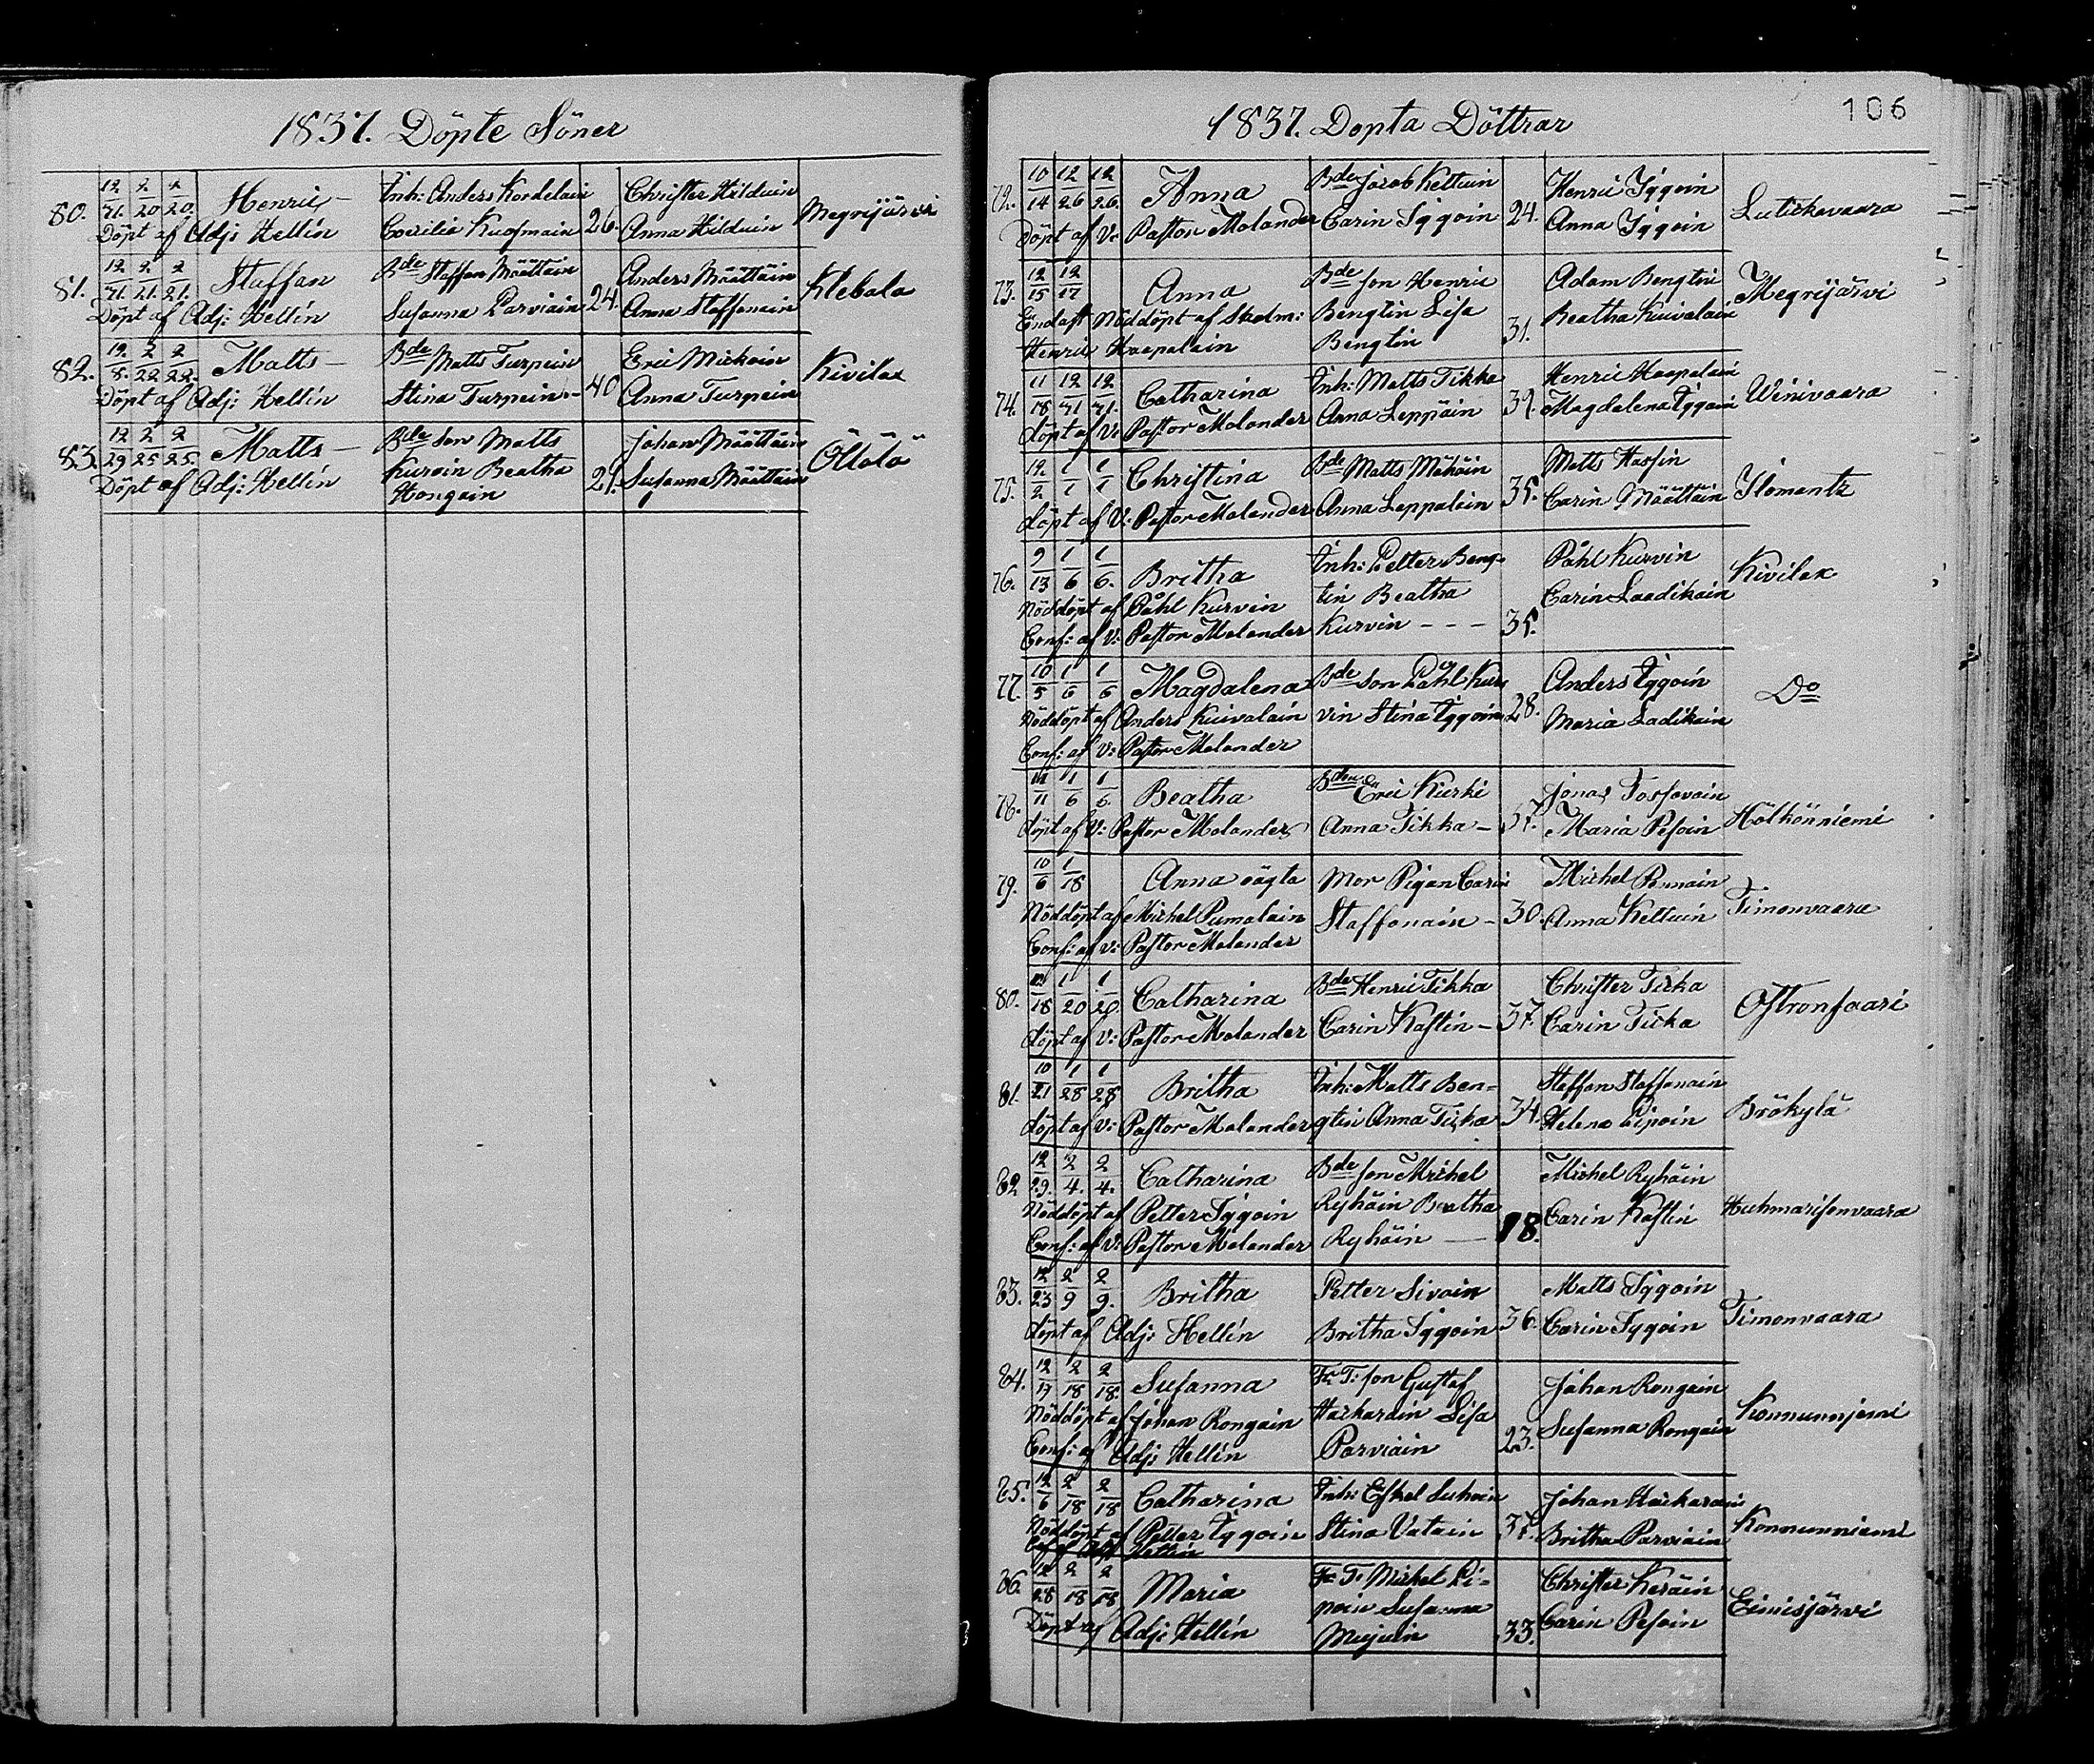 1837. Döpte Söner
80. 12/21. 2/20 2/20. Henric - Inh: Anders Kordelain 26. Christer Hilduin Megrijärvi
Döpt af Adj: Hellin Coecilia Kuosmain Anna Hilduin
81. 12/21. 2/21. 2/21. Staffan Bde Staffan Määttäin 24. Anders Määttäin Klebala
Döpt af Adj: Hellin Susanna Parviain Anna Staffanain
82. 12/8. 2/22 2/22. Matts - Bde Matts Turpein 40 Eric Mickoin Kivilax
Döpt af Adj: Hellin Stina Turpein - Anna Turpein
83. 12/29 2/25 2/25. Matts - Bde Son Matts Johan Määttäin Öllölö
Döpt af Adj: Hellin Kurvin Beatha 21. Susanna Määttäin
Hongain
1837. Döpta Döttrar
106
72. 10/14 12/26 12/26. Anna Bde Jacob Kettuin 24. Henric Iggoin Lutickavaara
Döpt af V: Pastor Molander Carin Iggoin Anna Iggoin
73. 12/15 12/17 Anna Bde son Henric Adam Bengtin Megrijärvi
Endast Nöddöpt af Skolm: Bengtin Lisa Beatha Kuivalain
Henric Haapalain Bengtin 31.
74. 11/18 12/21 12/21. Catharina Inh: Matts Tikka 39. Henric Haapalain Winivaara
döpt af V: Pastor Molander Anna Leppäin Magdalena Iggoin
75. 12/2 1/1 1/1 Christina Bde Matts Mähöin 35. Matts Hassin Ilomantz
döpt af V: Pastor Molander Anna Lappalain Carin Määttäin
76. 9/13 1/6 1/6. Britha Inh: Petter Beng- Påhl Kurvin Kivilax
Nöddöpt af Påhl Kurvin tin Beatha Carin Laadikain
Conf: af V: Pastor Molander Kurvin - - - 35.
77. 10/5 1/6 1/6 Magdalena Bde Son Påhl Kur- 28. Anders Iggoin Do
Nöddöpt af Anders Kuivalain vin Stina Iggoin Maria Ladikain
Conf: af V: Pastor Molander
78. 11/11 1/6 1/6. Beatha Bden Eric Kurki Jonas Tossavain Hölkönniemi
döpt af V: Pastor Molander Anna Tikka - 37. Maria Pesoin
79. 10/6 1/18 Anna oägta Mor Pigan Carin Michel Timonvaara
Nöddöpt af Michel Pumalain Staffanain - 30. Anna Kettuin
Conf: af V: Pastor Molander
80. 18 1/20 1/20. Catharina Bde Henric Tikka Christer Ticka Ostronsaari
döpt af V: Pastor Molander Carin Kastin - 37. Carin Ticka
81. 10/21 1/28 1/28 Britha Inh: Matts Ben= Staffan Staffanain Brökylä
döpt af V: Pastor Molander gtin Anna Ticka 34. Helena Pipoin
82 12/29. 2/4. 2/4. Catharina Bde son Michel Michel Ryhäin Huhmarisenvaara
Nöddöpt af Petter Iggoin Ryhäin Beatha Carin Kastin
Conf: af V: Pastor Molander Ryhäin - 18.
83. 12/23 2/9 2/9. Britha Petter Sivoin 36. Matts Iggoin Timonvaara
döpt af Adj: Hellin Britha Iggoin Carin Iggoin
84. 12/17 2/18 2/18. Susanna Fr T: son Gustaf Johan Rongain
Nöddöpt af Johan Rongain Harkarain Lisa Susanna Rongain
Conf: af Adj: Hellin Parviain 23.
85. 12/6 2/18 2/18 Catharina Inh: Eskel Suhoin 37. Johan Harkarain Konnunniemi
Nöddöpt af Petter Iggoin Stina Vatain Britha Parviain
Hellin
86. 12/28 2/18 2/18 Maria Fr T: Michel Pi= Christer Keräin Eimisjärvi
Döpt af Adj: Hellin poin Susanna Carin Pesoin
Mujuin 33.